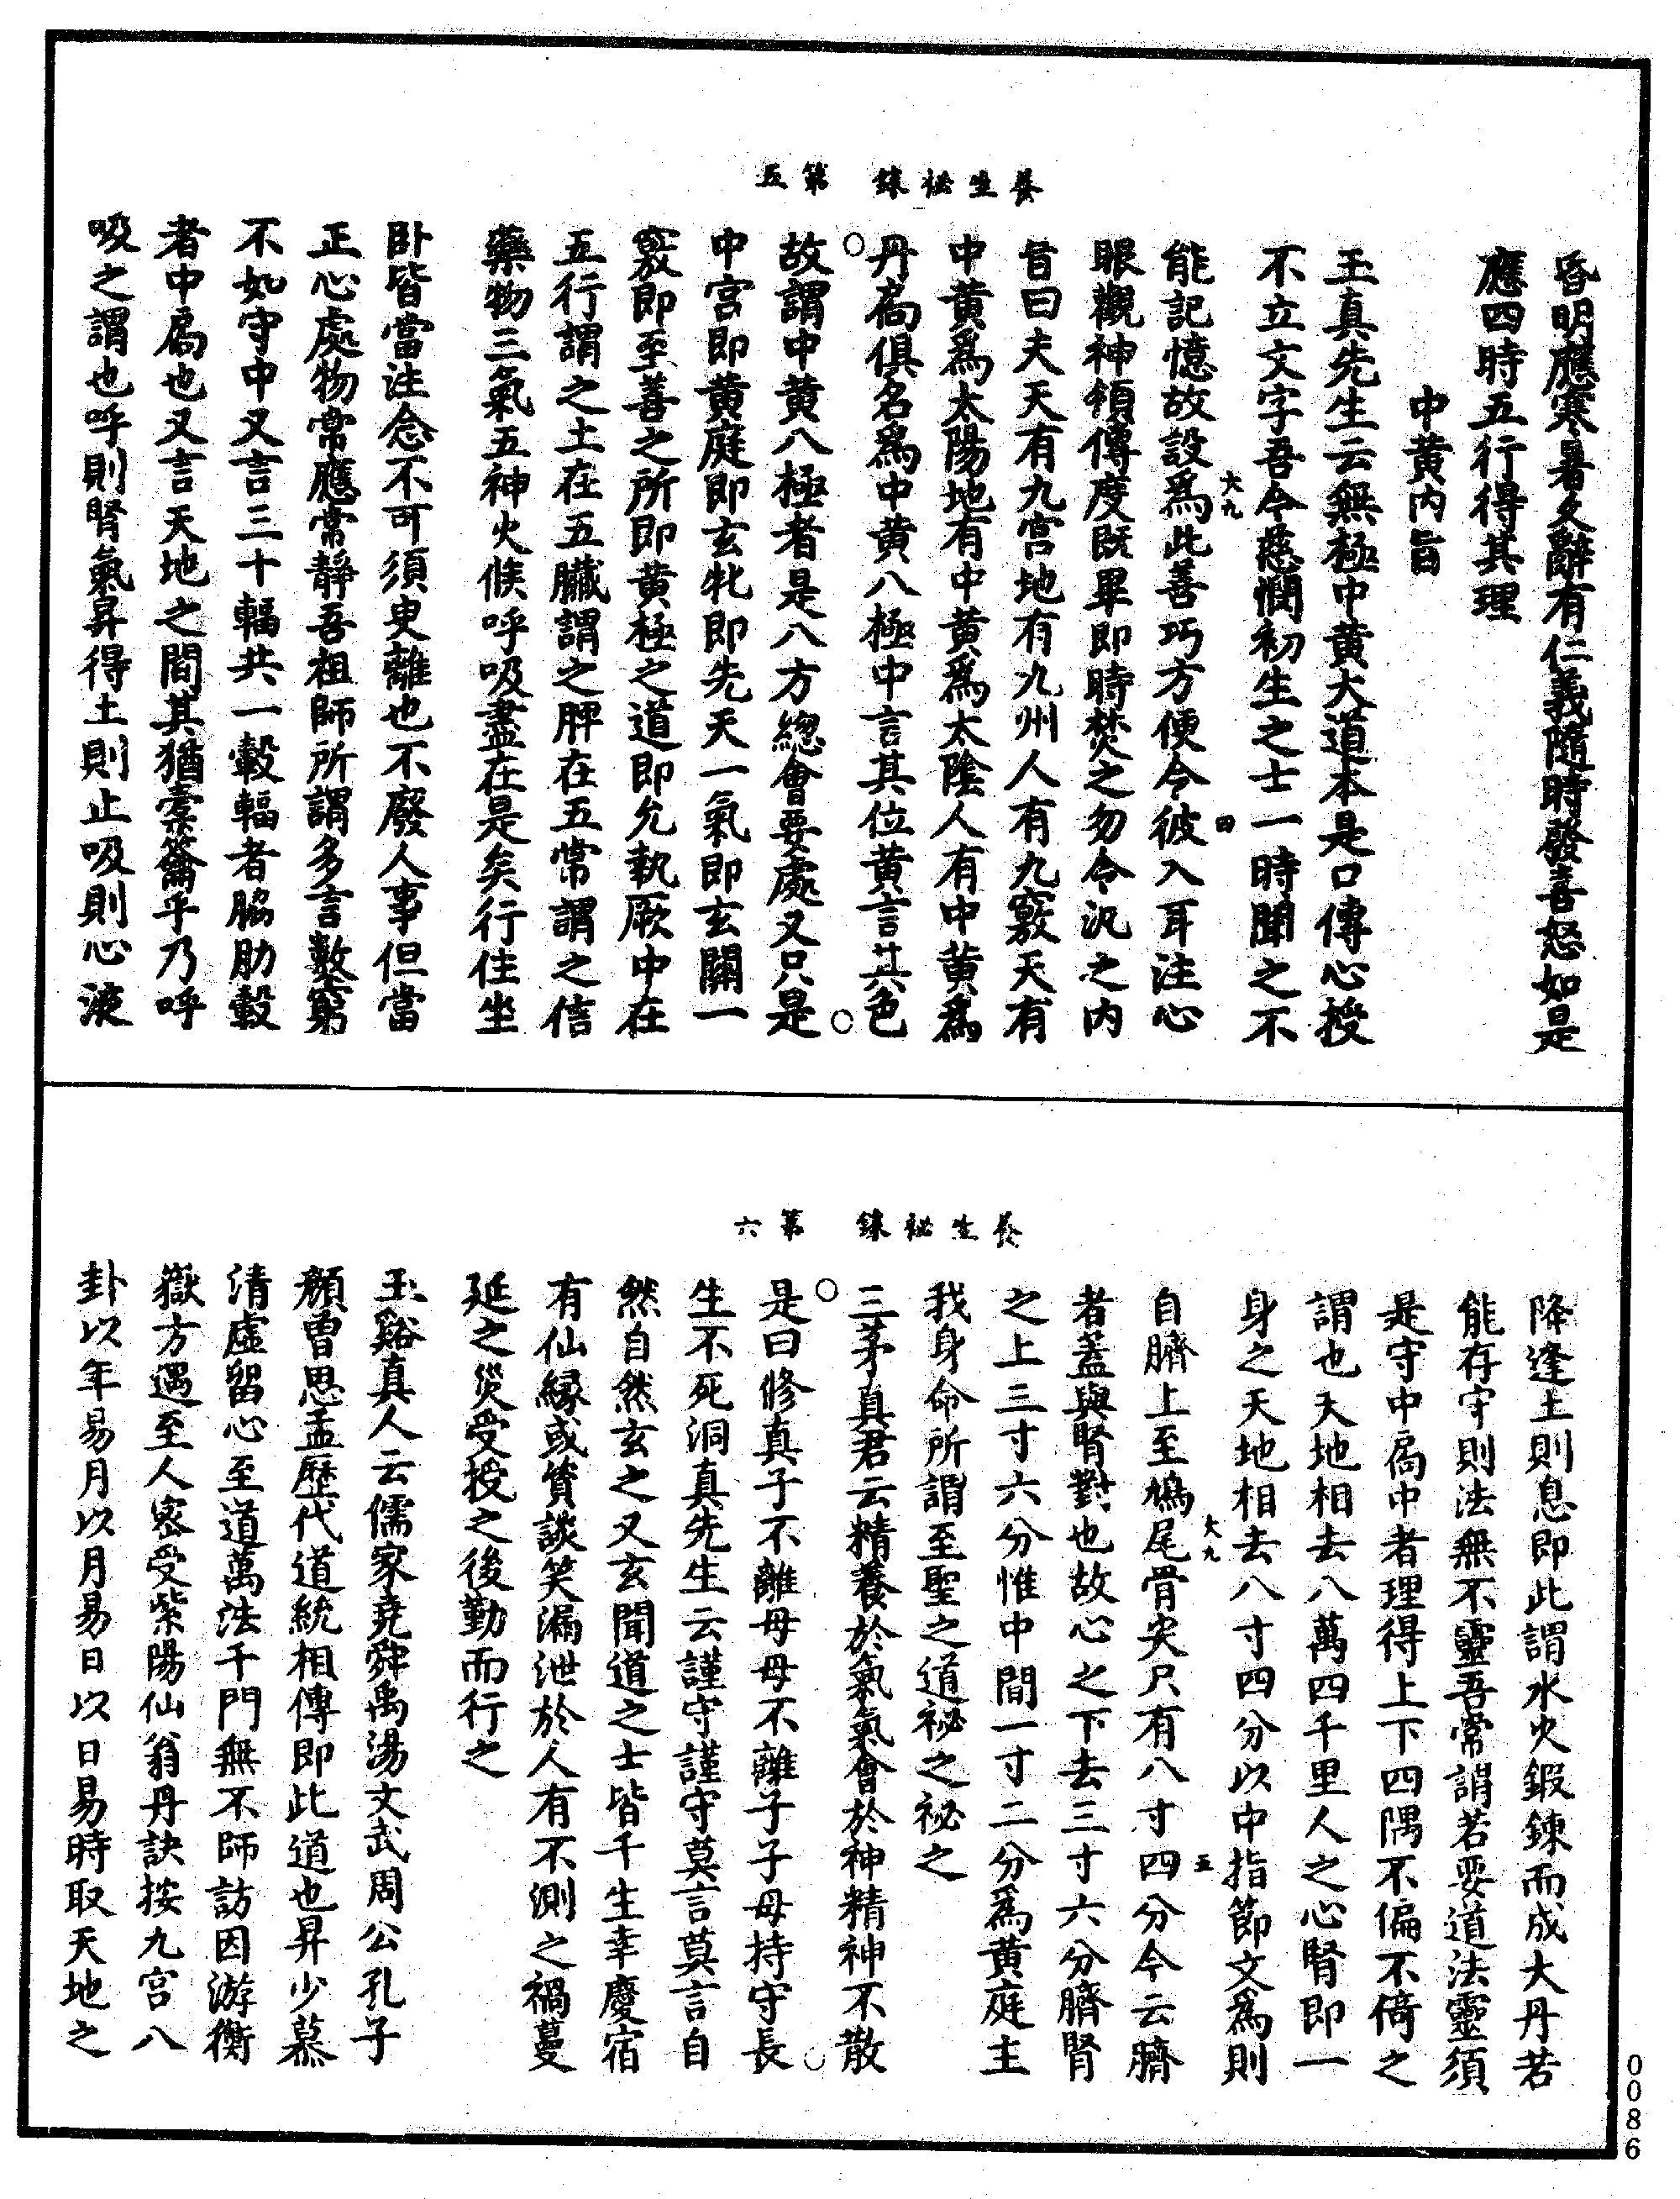 昏明應寒暑爻辭有仁義隨時發喜怒如是
應四時五行得其理
中黃內旨
玉真先生云無極中黃大道本是口傳心授
不立文字吾今慈憫初生之士一時聞之不
大九
四
能記憶故設爲此善巧方便令彼入耳注心
眼觀神領傳度既畢即時焚之勿令汎之內
旨曰夫天有九宮地有九州人有九竅天有
中黃爲太陽地有中黃爲太陰人有中黃爲
丹扄俱名爲中黃八極中言其位黃言其色
養生祕錄　第五
故謂中黃八極者是八方總會要處又只是
中宮即黃庭即玄牝即先天一氣即玄關一
竅即至善之所即黃極之道即允執厥中在
五行謂之土在五臟謂之脾在五常謂之信
藥物三氣五神火候呼吸盡在是矣行住坐
臥皆當注念不可須臾離也不廢人事但當
正心處物常應常靜吾祖師所謂多言數窮
不如守中又言三十輻共一轂輻者脇肋轂
者中扄也又言天地之間其猶橐籥乎乃呼
吸之謂也呼則腎氣昇得土則止吸則心液
降逢土則息即此謂水火鍜鍊而成大丹若
能存守則法無不靈吾常謂若要道法靈須
是守中扄中者理得上下四隅不偏不倚之
謂也天地相去八萬四千里人之心腎即一
身之天地相去八寸四分以中指節文爲則
大九
五
自臍上至鳩尾骨尖尺有八寸四分今云臍
者蓋與腎對也故心之下去三寸六分臍腎
之上三寸六分惟中間一寸二分爲黃庭主
我身命所謂至聖之道祕之祕之
三茅真君云精養於氣氣會於神精神不散
養生祕錄　第六
是曰修真子不離母母不離子子母持守長
生不死洞真先生云謹守謹守莫言莫言自
然自然玄之又玄聞道之士皆千生幸慶宿
有仙緣或賫談笑漏泄於人有不測之禍蔓
延之災受授之後勤而行之
玉谿真人云儒家堯舜禹湯文武周公孔子
顏曾思孟歷代道統相傳即此道也昇少慕
清虛留心至道萬法千門無不師訪因游衡
嶽方遇至人密受紫陽仙翁丹訣按九宮八
卦以年易月以月易日以日易時取天地之
0086